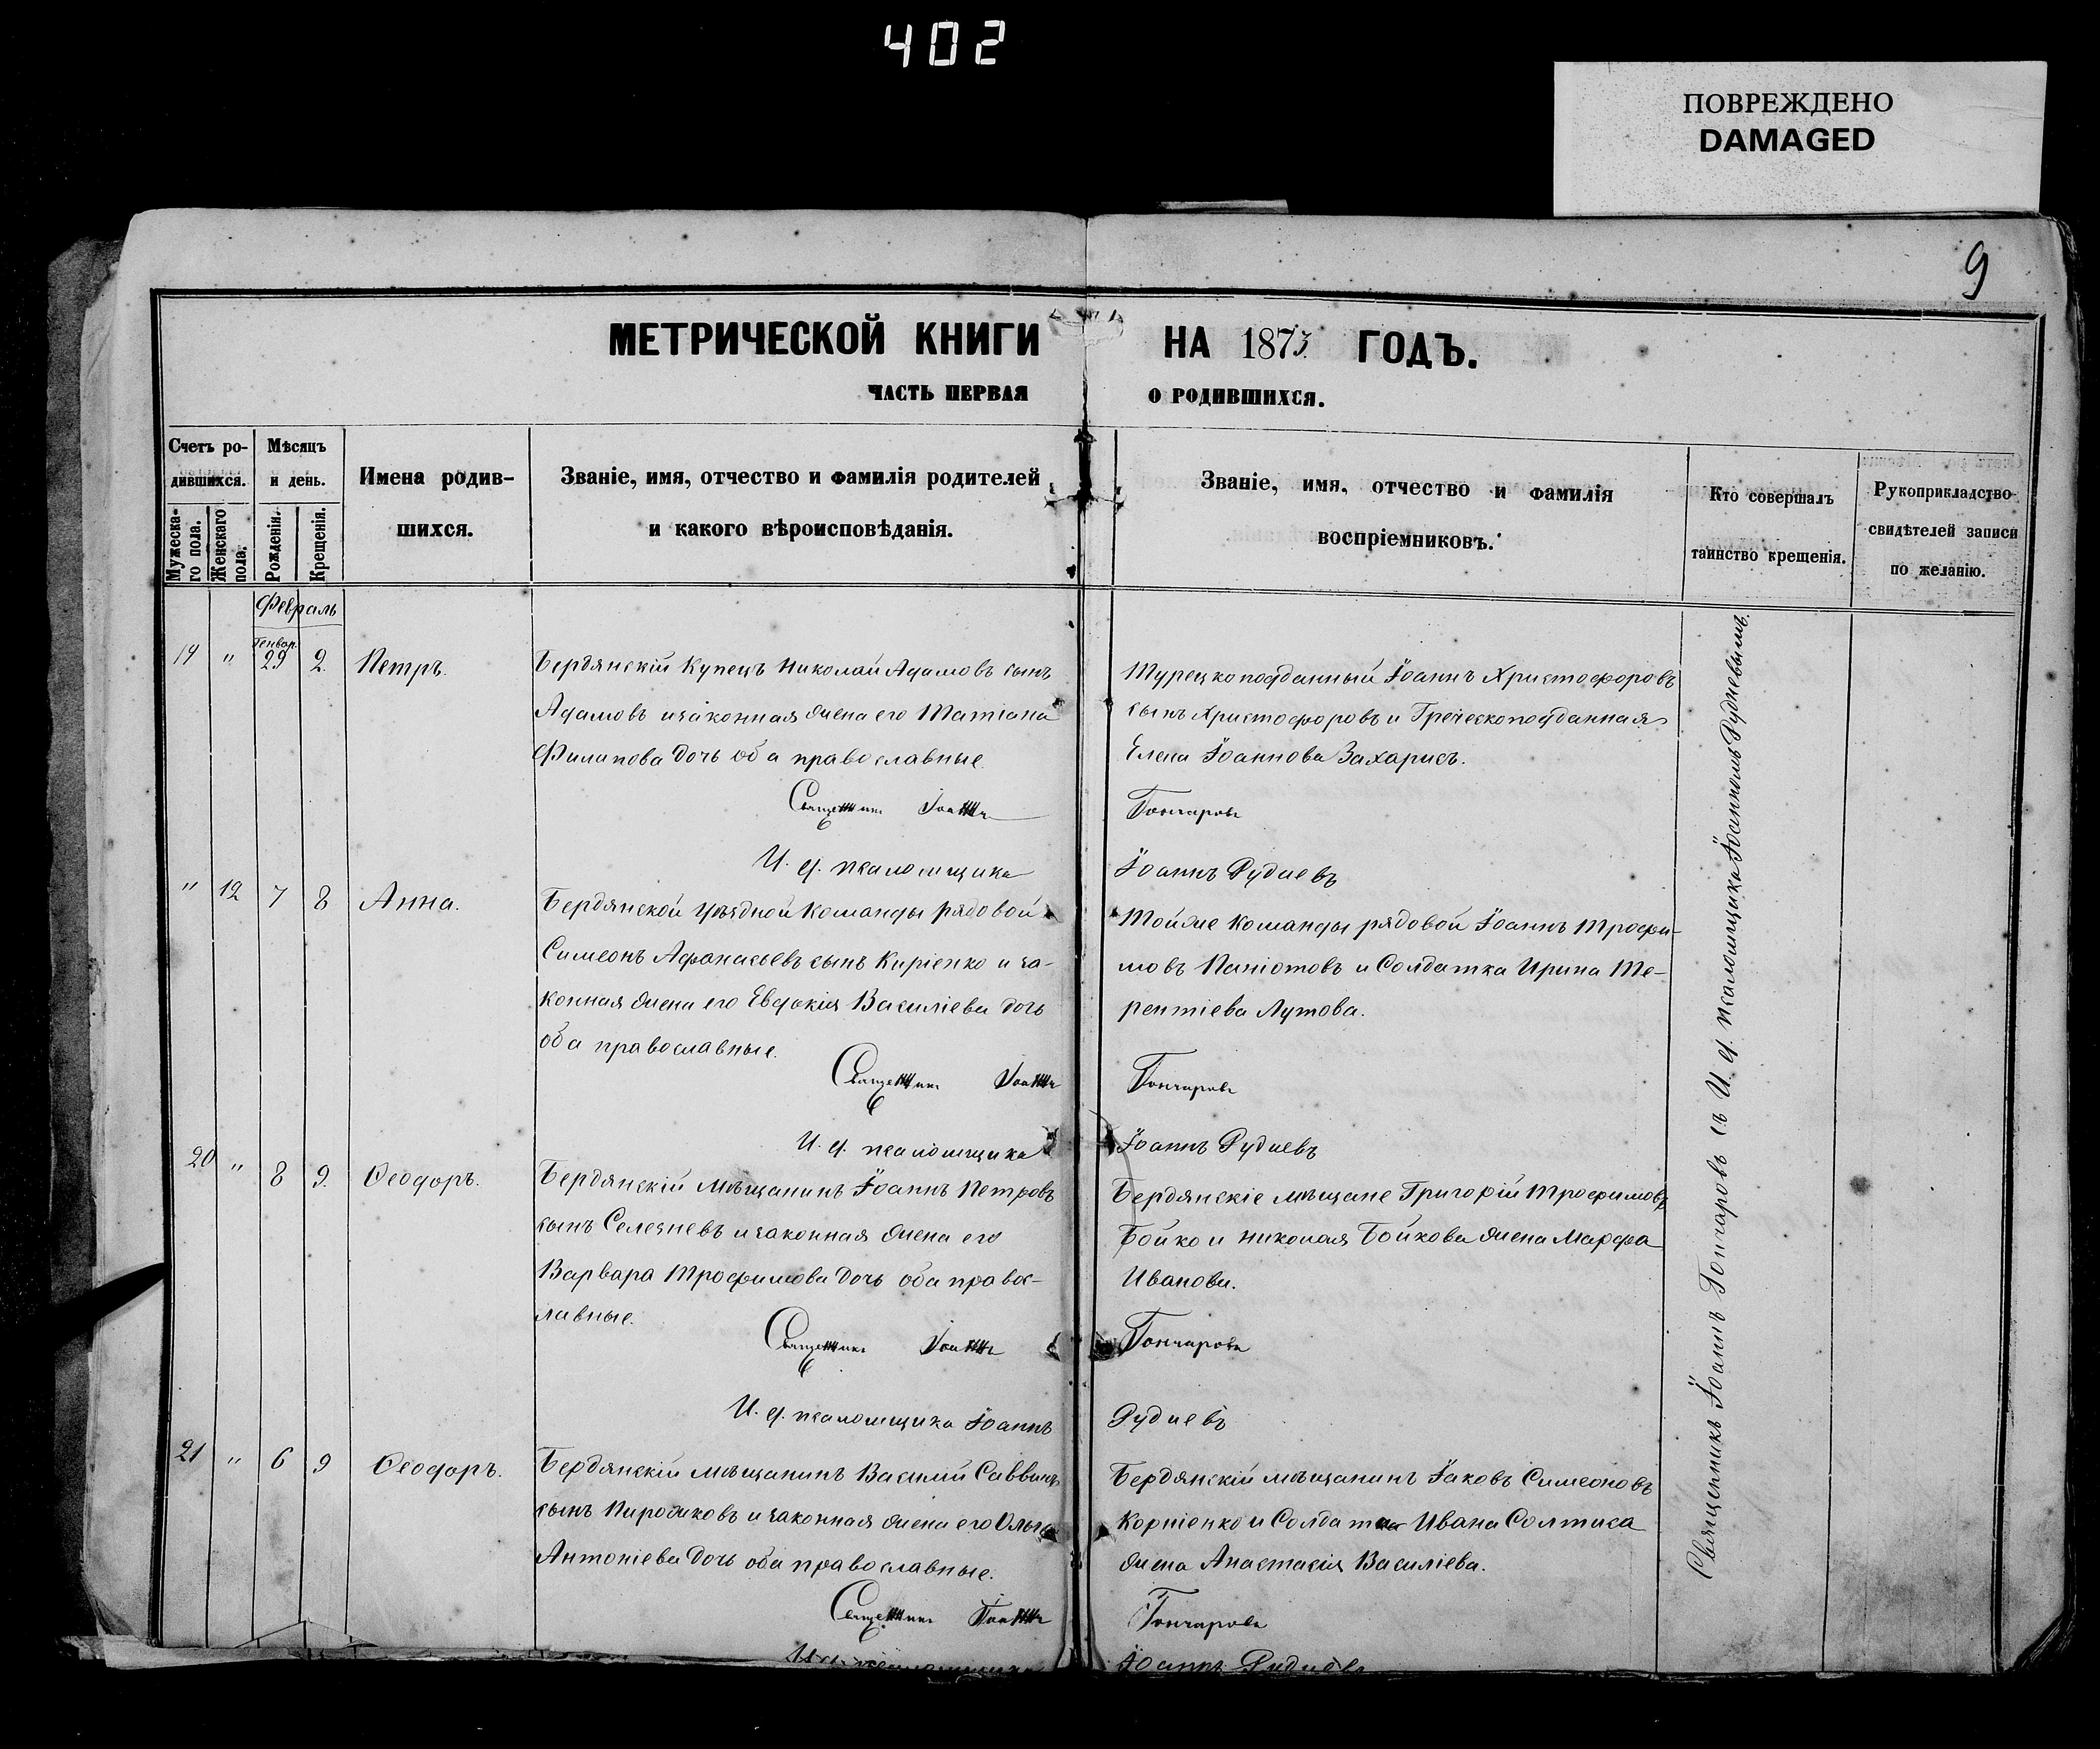 402
ПОВРЕЖДЕНО
DAMAGED
9
МЕТРИЧЕСКОЙ КНИГИ НА 1873 ГОДЪ.
ЧАСТЬ ПЕРВАЯ О РОДИВШИХСЯ.
Счетъ ро-
дившихся.
Мужеска-
го пола.
Женскаго
пола.
Мѣсяцъ
и день.
Рожденія.
Крещенія.
Имена родив-
шихся.
Званіе, имя, отчество и фамилія родителей
и какого вѣроисповѣданія.
Званіе, имя, отчество и фамилія
воспріемниковъ.
Кто совершалъ
таинство крещенія.
Рукоприкладство
свидѣтелей записи
по желанію.
Февраль
Генвар.
19 " 29 2. Петръ.
Бердянскій Купецъ Николай Адамовъ сынъ
Адамовъ и законная жена его Татіана
Филипова дочь оба православные.
Турецкоподданный Іоаннъ Христофоровъ
сынъ Христофоровъ и Греческоподданная
Елена Іоаннова Захарисъ.
Священникъ Іоаннъ Гончаровъ
И. д. псаломщика Іоаннъ Рудневъ
" 12 7 8 Анна.
Бердянской уѣздной Команды рядовой
Симеонъ Афанасьевъ сынъ Киріенко и за-
конная жена его Евдокія Василіева дочь
оба православные.
Той же Команды рядовой Іоаннъ Трофи-
мовъ Паніотовъ и Солдатка Ирина Те-
рентіева Лутова.
Священникъ Іоаннъ Гончаровъ
И. д. псаломщика Іоаннъ Рудневъ
20 " 8 9. Ѳеодоръ.
Бердянскій мѣщанинъ Іоаннъ Петровъ
сынъ Селезневъ и законная жена его
Варвара Трофимова дочь оба правос-
лавные.
Бердянскіе мѣщане Григорій Трофимовъ
Бойко и Николая Бойкова жена Марфа
Иванова.
Священникъ Іоаннъ Гончаровъ
И. д. псаломщика Іоаннъ Рудневъ
21 " 6 9 Ѳеодоръ.
Бердянскій мѣщанинъ Василій Саввинъ
сынъ Пирожковъ и законная жена его Ольга
Антоніева дочь оба православные.
Бердянскій мѣщанинъ Іаковъ Симеоновъ
Корніенко и Солдата Ивана Солтиса
жена Анастасія Василіева.
Священникъ Іоаннъ Гончаровъ
И. д. псаломщика Іоаннъ Рудневъ
Священникъ Іоаннъ Гончаровъ съ И. д. псаломщика Іоанномъ Рудневымъ.